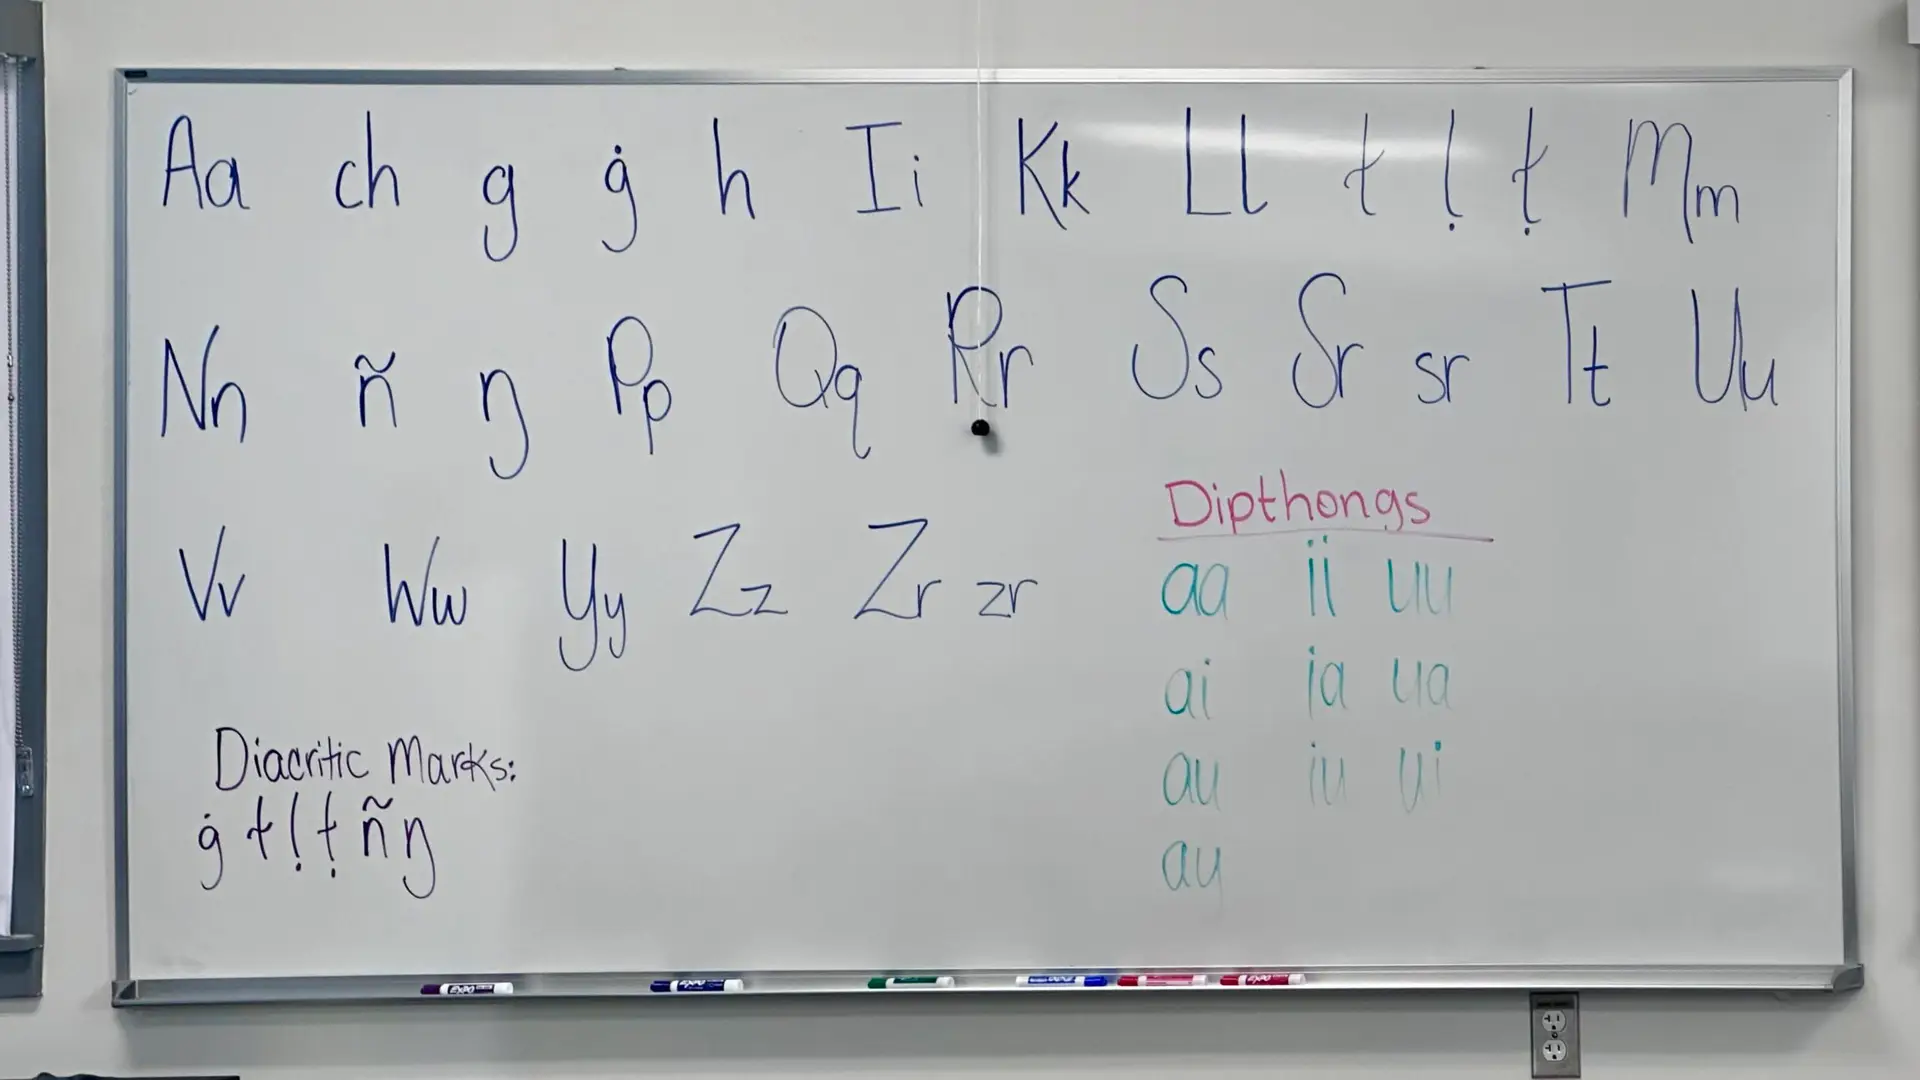 Aa ch g ġ h Ii Kk Ll ł ḷ ł̣ Mm
Nn ñ ŋ Pp Qq Rr Ss Sr sr Tt Uu
Vv Ww Yy Zz Zr zr
Dipthongs
aa ii uu
ai ia ua
au iu ui
ay
Diacritic Marks:
ġ ł ḷ ł̣ ñ ŋ
EXPO
EXPO
EXPO